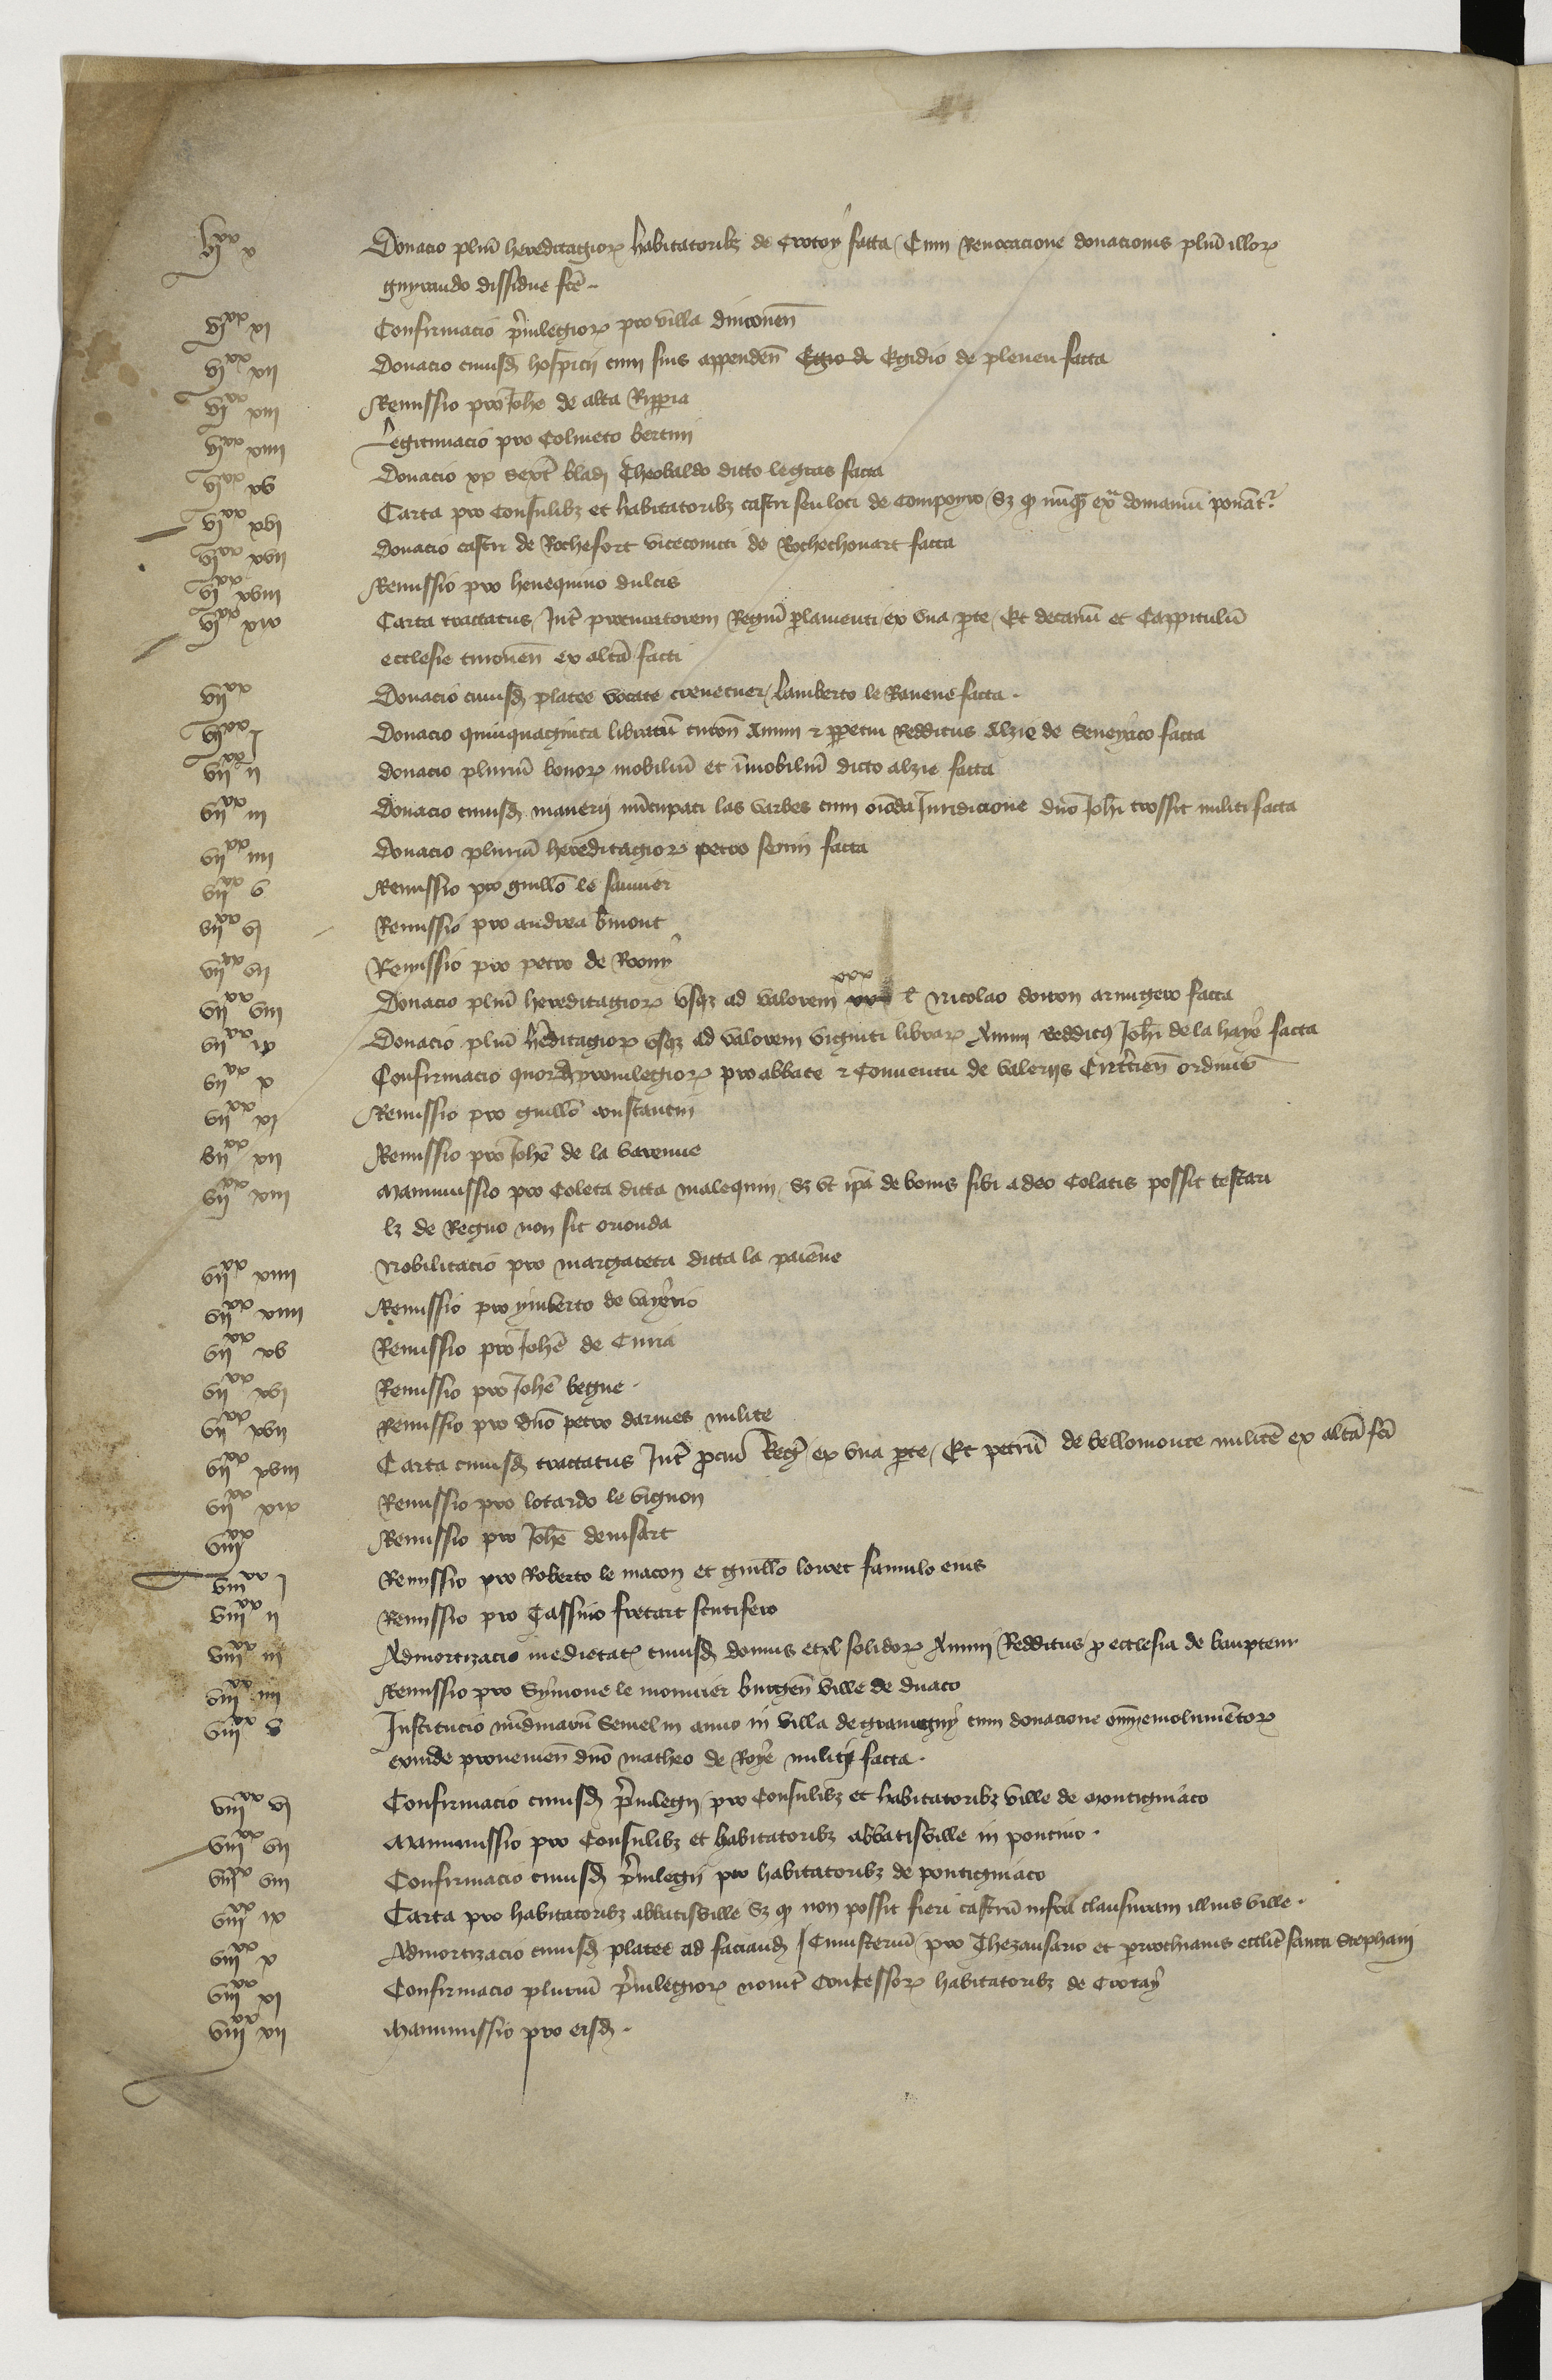 vjxx x Donacio pluriū hereditagioꝝ habitatoribꝫ de Crotoy facta / Cum Revocacione donacionis pluriū illoꝝ
guyrando dissidue fcē.
vjxx xj Confirmacio p̄vilegioꝝ pro villa divionen̄
vjxx xij Donacio cuiusdꝫ hospicii cum suis appenden̄ Egidio de pleneu facta
vjxx xiij Remissio pro Joh̄e de alta Rippia
vjxx xiiij Legitimacio pro Colineto bertini
vjxx xv Donacio xx sext̄ bladi Theobaldo dicto legras facta
vjxx xvj Carta pro Consulibꝫ et habitatoribꝫ castri seu loci de Compoyro / Sꝫ ꝙ nūqꝫ exᵃ domaniū ponāt̄
vjxx xvij Donacio castri de Rochefort vicecomiti de Rochechouart facta
vjxx xviij Remissio pro henequino dulcis
vjxx xix Carta tractatus / Int̄ procuratorem Regiū p̄lamenti / ex una p̄te / Et decanū et Cappitulū
ecclesie turonen̄ ex altā facti
vijxx Donacio cuiusdꝫ platee vocate / Lamberto le Ravene facta.
vijxx j Donacio quinquaginta libratū turon̄ Annui ⁊ ꝑpetui Redditus Alzie de Seneyraco facta
vijxx ij donacio pluriū bonoꝝ mobiliū et īmobiliū dicto alzie facta
vijxx iij Donacio cuiusdꝫ manerii nūcupati las barbes cum oīoda Juridicione dn̄o Joh̄i crosset militi facta
vijxx iiij Donacio pluriū hereditagioꝝ petro semi facta
vijxx v Remissio pro guillō le saunier
vijxx vj Remissio pro andrea bimont
vijxx vij Remissio pro petro de Roomy
vijxx viij Donacio pluriū hereditagioꝝ usqꝫ ad valorem xxx ł Nicolao doiron armigero facta
vijxx ix Donacio pluriū hereditagioꝝ usqꝫ ad valorem viginti libraꝝ Annui redditꝰ Joh̄i de la haye facta
vijxx x Confirmacio quordꝫ previlegioꝝ pro abbate ⁊ Conventu de Valeriis Cisterciēn̄ ordinis
vijxx xj Remissio pro guillō constantin
vijxx xij Remissio pro Joh̄e de la Varenne
vijxx xiij Manumissio pro Coleta dicta malequin / Sꝫ ut ip̄a de bonis sibi a deo Colatis possit testari
lꝫ de Regno non sit oriunda
vijxx xiiij Nobilitacio pro margareta dicta la paienne
vijxx xiiij Remissio pro ymberto de vayerio
vijxx xv Remissio pro Joh̄e de Curia
vijxx xvj Remissio pro Joh̄e begue.
vijxx xvij Remissio pro dn̄o petro darmes milite
vijxx xviij Carta cuiusdꝫ tractatus Int̄ p̄curē Regē ex una p̄te / Et petrū de bellomonte militē ex altā fcī
vijxx xix Remissio pro lotardo le vignon
viijxx Remissio pro Joh̄e denisart
viijxx j Remissio pro Roberto le macon et guillō lorret famulo eius
viijxx ij Remissio pro Cassino fretart scutifero
viijxx iij Admortizacio medietatꝭ cuiusdꝫ domus et xl solidoꝝ Annui Redditus / ꝓ ecclesia de baupteur
viijxx iiij Remissio pro Symone le monnier burgen̄ ville de duaco
viijxx v Institucio nūdinarū semel in anno in villa de gramegny cum donacione om̄i emolumētoꝝ
exinde provenien̄ dn̄o matheo de Roye militi facta.
viijxx vj Confirmacio cuiusdꝫ p̄vilegii / pro Consulibꝫ et habitatoribꝫ ville de montigniaco
viijxx vij Manumissio pro Consulibꝫ et habitatoribꝫ abbatisville in pontivo.
viijxx viij Confirmacio cuiusdꝫ p̄vilegii pro habitatoribꝫ de pontigniaco
viijxx ix Carta pro habitatoribꝫ abbatisville Sꝫ ꝙ non possit fieri castrū infra clausuram illius ville.
viijxx x Admortizacio cuiusdꝫ platee ad faciendꝫ / Cimiteriū / pro Thezaurario et parrochianis eccl̄ie sancti Stephani
viijxx xj Confirmacio pluriū p̄vilegioꝝ novit̄ Concessoꝝ habitatoribꝫ de Crotay
viijxx xij Manumissio pro eisdꝫ.